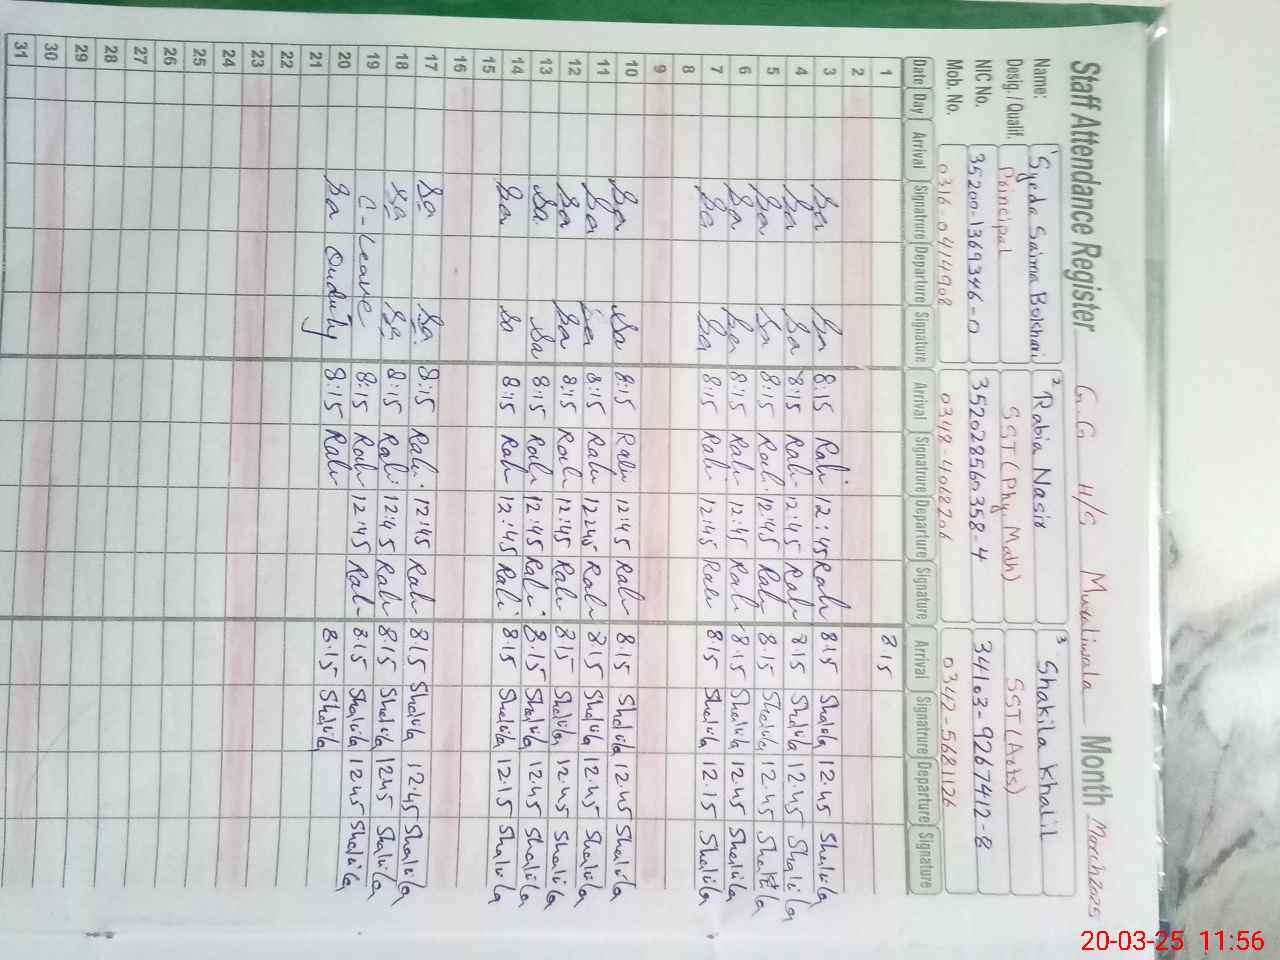 Staff Attendance Register G.G H/S Muraliwala Month March 2025
Name: 1 Syeda Saima Bokhari 2 Rabia Nasir 3 Shakila Khalil
Desig. / Qualif. Principal SST (Phy, Math) SST (Arts)
NIC No. 35200-1369346-0 352028560358-4 34103-9267412-8
Mob. No. 0316-0414908 0348-4068206 0342-5681126
Date Day Arrival Signatrure Departure Signature Arrival Signatrure Departure Signature Arrival Signatrure Departure Signature
1 8:15
2
3 Sa Sa 8:15 Rabi 12:45 Rabi 8:15 Shakila 12:45 Shakila
4 Sa Sa 8:15 Rabi 12:45 Rabi 8:15 Shakila 12:45 Shakila
5 Sa Sa 8:15 Rabi 12:45 Rabi 8:15 Shakila 12:45 Shakila
6 Sa Sa 8:15 Rabi 12:45 Rabi 8:15 Shakila 12:45 Shakila
7 Sa Sa 8:15 Rabi 12:45 Rabi 8:15 Shakila 12:15 Shakila
8
9
10 Sa Sa 8:15 Rabi 12:45 Rabi 8:15 Shakila 12:45 Shakila
11 Sa Sa 8:15 Rabi 12:45 Rabi 8:15 Shakila 12:45 Shakila
12 Sa Sa 8:15 Rabi 12:45 Rabi 8:15 Shakila 12:45 Shakila
13 Sa Sa 8:15 Rabi 12:45 Rabi 8:15 Shakila 12:45 Shakila
14 Sa Sa 8:15 Rabi 12:45 Rabi 8:15 Shakila 12:15 Shakila
15
16
17 Sa Sa 8:15 Rabi 12:45 Rabi 8:15 Shakila 12:45 Shakila
18 Sa Sa 8:15 Rabi 12:45 Rabi 8:15 Shakila 12:45 Shakila
19 C-Leave 8:15 Rabi 12:45 Rabi 8:15 Shakila 12:45 Shakila
20 Sa Onduty 8:15 Rabi 8:15 Shakila
21
22
23
24
25
26
27
28
29
30
31
20-03-25 11:56